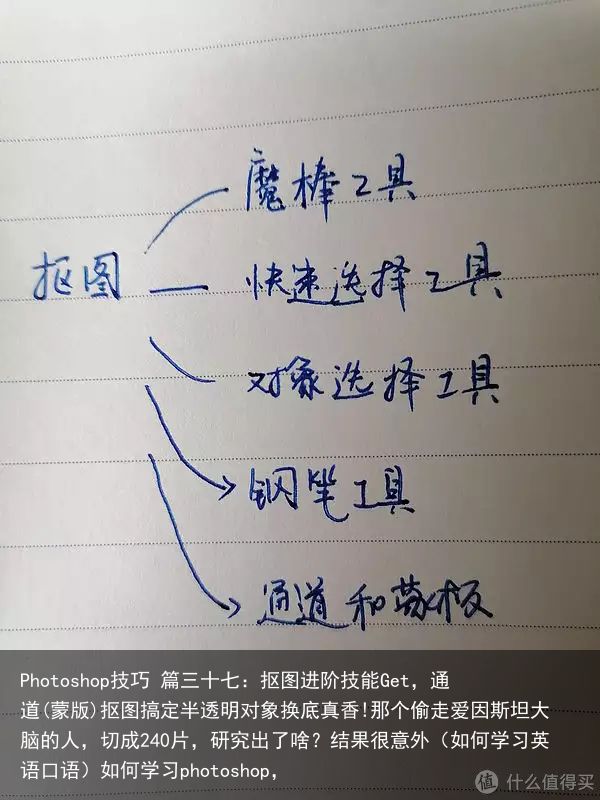 魔棒工具
抠图
快速选择工具
对象选择工具
钢笔工具
通道和蒙板
Photoshop技巧 篇三十七：抠图进阶技能Get，通
道(蒙版)抠图搞定半透明对象换底真香!那个偷走爱因斯坦大
脑的人，切成240片，研究出了啥？结果很意外（如何学习英
语口语）如何学习photoshop，
值 什么值得买